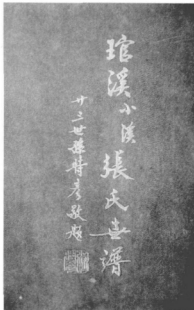 琯溪小溪張氏世譜
廿三世孫特彥敬題